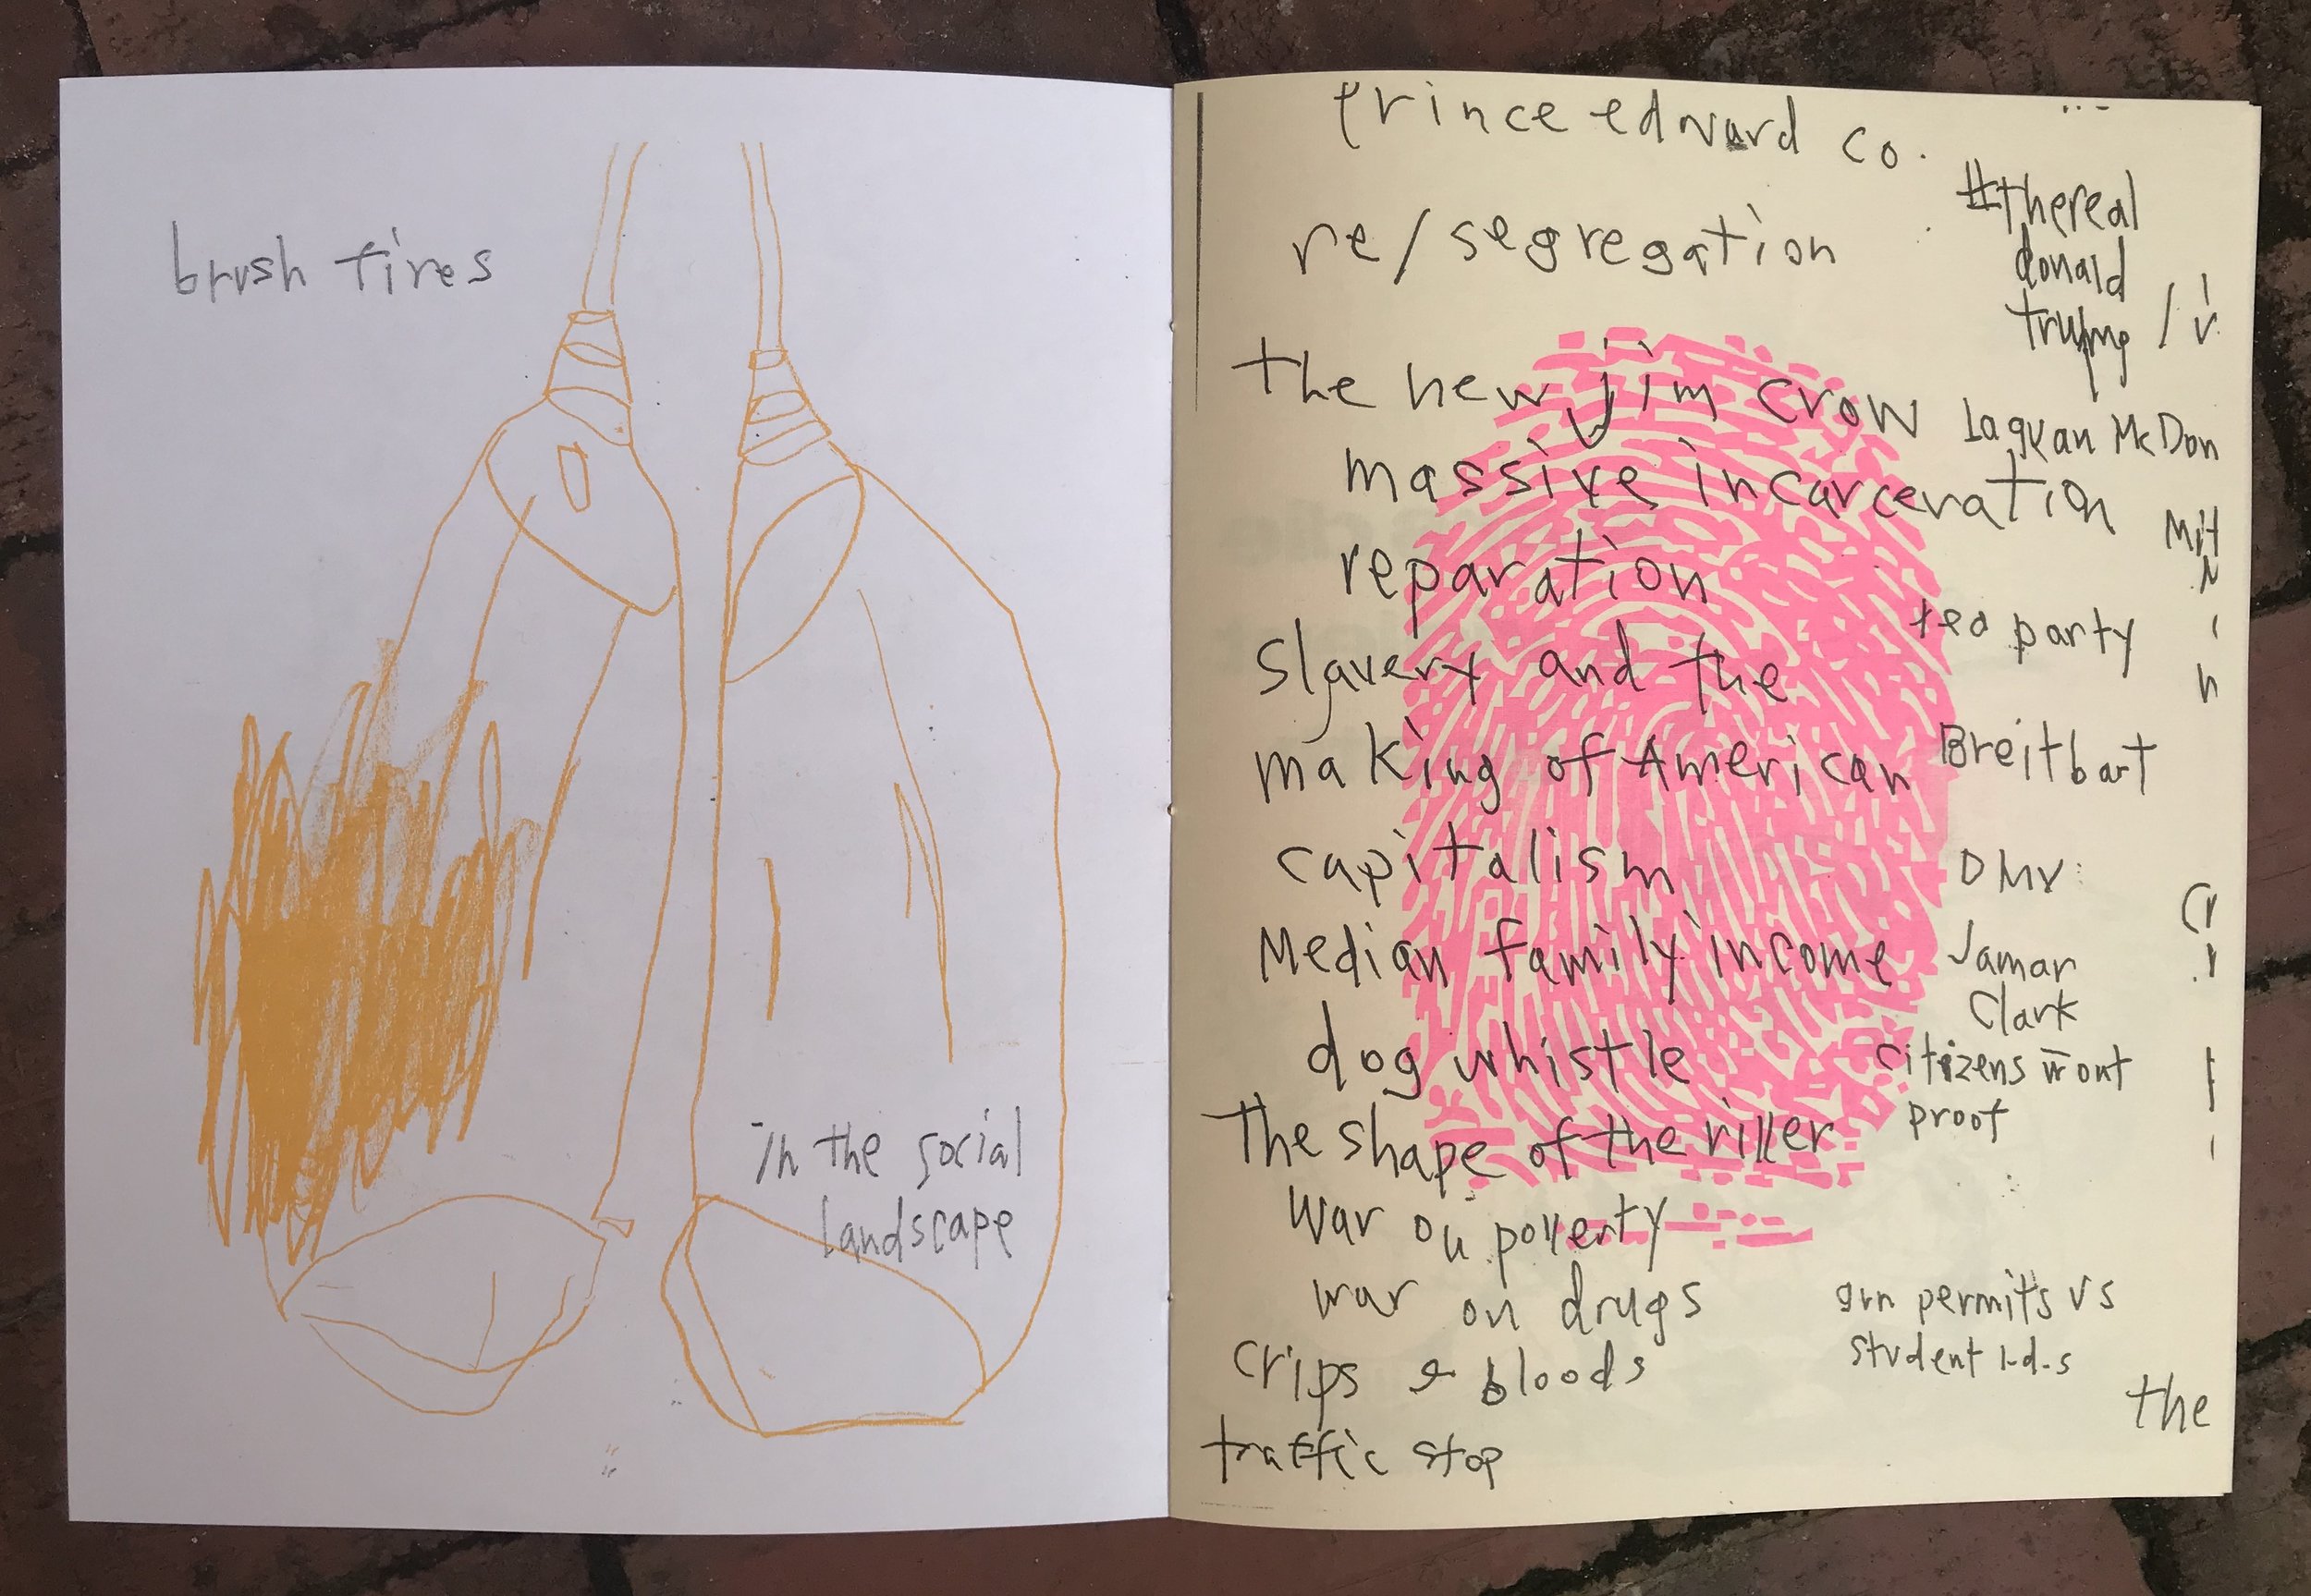 brush fires
in the social
landscape
prince edward co.
re/segregation
#thereal
donald
trump /
the new jim crow
Laquan McDon
massive incarceration
reparation
tea party
slavery and the
making of American
Breitbart
capitalism
DMV
Median family income
Jamar
Clark
dog whistle
citizens w out
proof
The shape of the river
war on poverty
war on drugs
gun permits vs
student i.d.s
crips & bloods
the
traffic stop